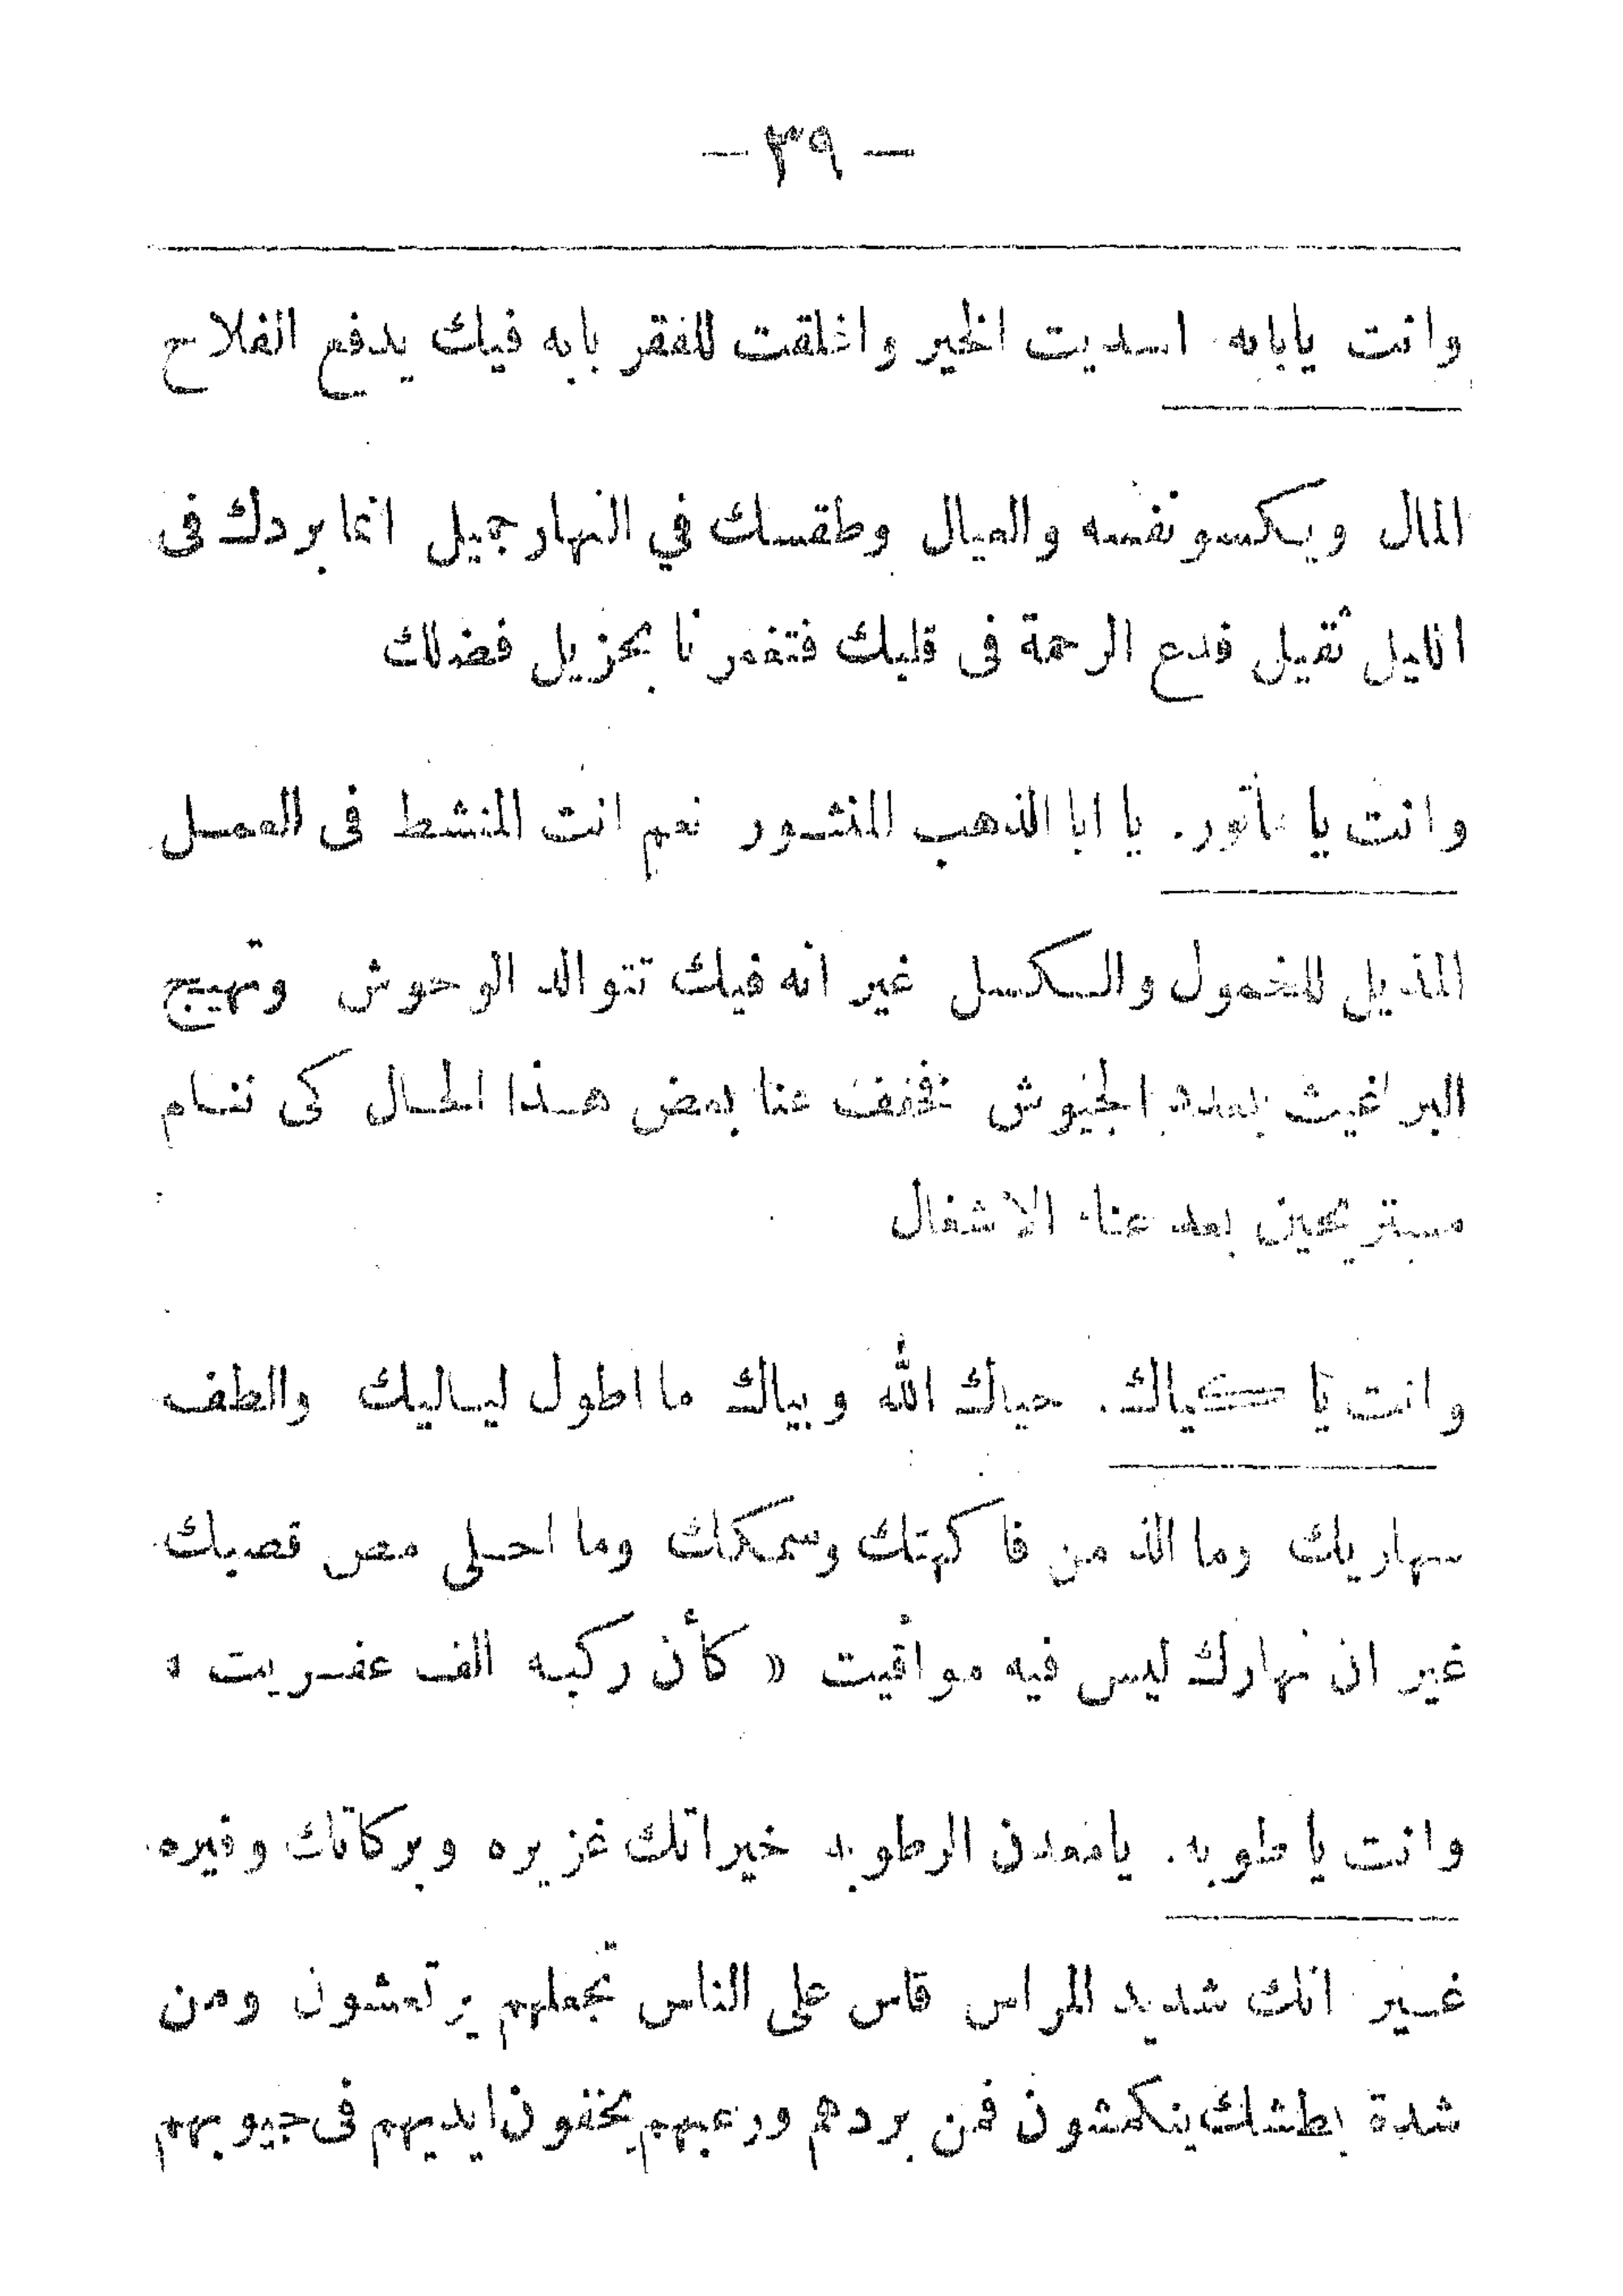 — ٣٩ —
وانت يابابه اسديت الخير واغلقت للفقر بابه فيك يدفع الفلاح
المال ويكسو نفسه والعيال وطقسك في النهار جميل انما بردك فى
الليل ثقيل فدع الرحمة فى قلبك فتغمرنا بجزيل فضلك
وانت يا هاتور. يا ابا الذهب المنثور نعم انت المنشط فى العمل
المذيل للخمول والكسل غير انه فيك تتوالد الوحوش وتهييج
البراغيث بعدد الجيوش تخفف عنا بعض هذا الحال كى ننام
مستريحين بعد عناء الاشغال
وانت يا كياك. حياك الله وبياك ما اطول لياليك والطف
سهاريك وما الذ من فاكهتك وسمكك وما احلى مص قصبك
غير ان نهارك ليس فيه مواقيت « كأن ركبه الف عفريت »
وانت ياطوبه. يامعدن الرطوبه خيراتك غزيره وبركاتك وفيره
غير انك شديد المراس قاس على الناس تجعلهم يرتعشون ومن
شدة بطشك ينكمشون فمن بردهم ورعبهم يخفون ايديهم فى جيوبهم